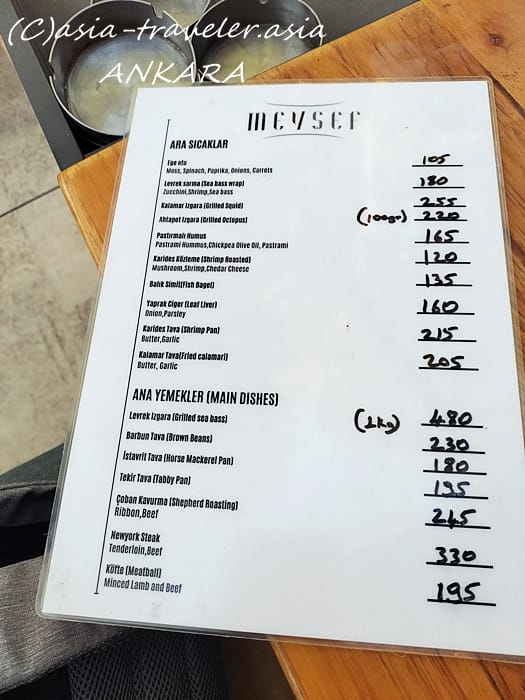 (C)asia-traveler.asia
ANKARA
MEVSEF
ARA SICAKLAR
Ege otu 105
Moss, Spinach, Paprika, Onions, Carrots
Levrek sarma (Sea bass wrap) 180
Zucchini,Shrimp,Sea bass
Kalamar Izgara (Grilled Squid) 255
Ahtapot Izgara (Grilled Octopus) (100gr) 220
Pastırmalı Humus 165
Pastrami Hummus,Chickpea Olive Oil, Pastrami
Karides Közleme (Shrimp Roasted) 120
Mushroom,Shrimp,Chedar Cheese
Balık Simit(Fish Bagel) 135
Yaprak Ciger (Leaf Liver) 160
Onion,Parsley
Karides Tava (Shrimp Pan) 215
Butter,Garlic
Kalamar Tava(Fried calamari) 205
Butter, Garlic
ANA YEMEKLER (MAIN DISHES)
Levrek Izgara (Grilled sea bass) (1kg) 480
Barbun Tava (Brown Beans) 230
İstavrit Tava (Horse Mackerel Pan) 180
Tekir Tava (Tabby Pan) 195
Çoban Kavurma (Shepherd Roasting) 245
Ribbon,Beef
Newyork Steak 330
Tenderloin,Beef
Köfte (Meatball) 195
Minced Lamb and Beef